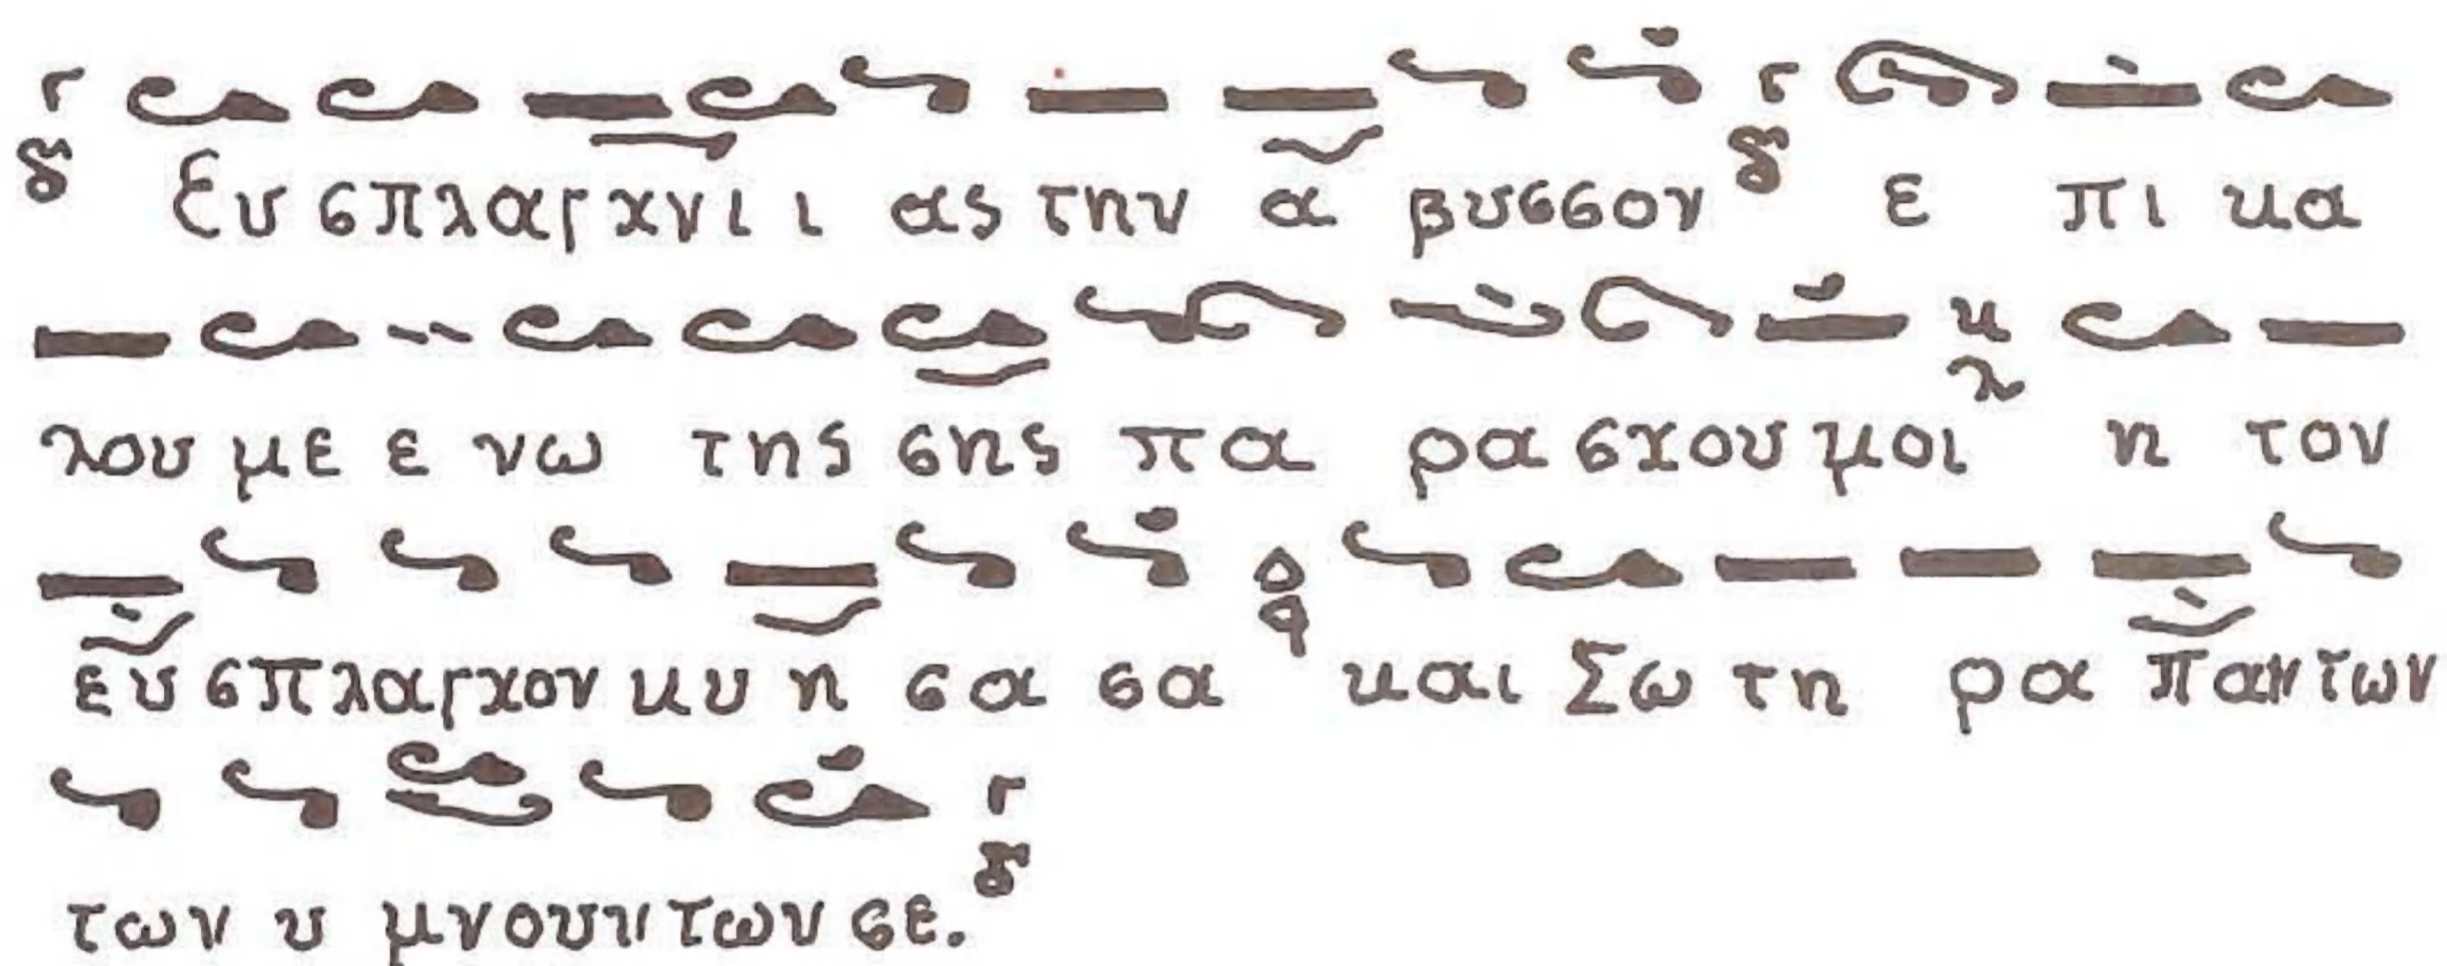 Ευ σπλαγχνι ι ας την α βυσσον ε πι κα
λου με ε νω της σης πα ρα σχου μοι η τον
ευ σπλαγχον κυ η σα σα και Σω τη ρα παντων
των υ μνουντων σε.